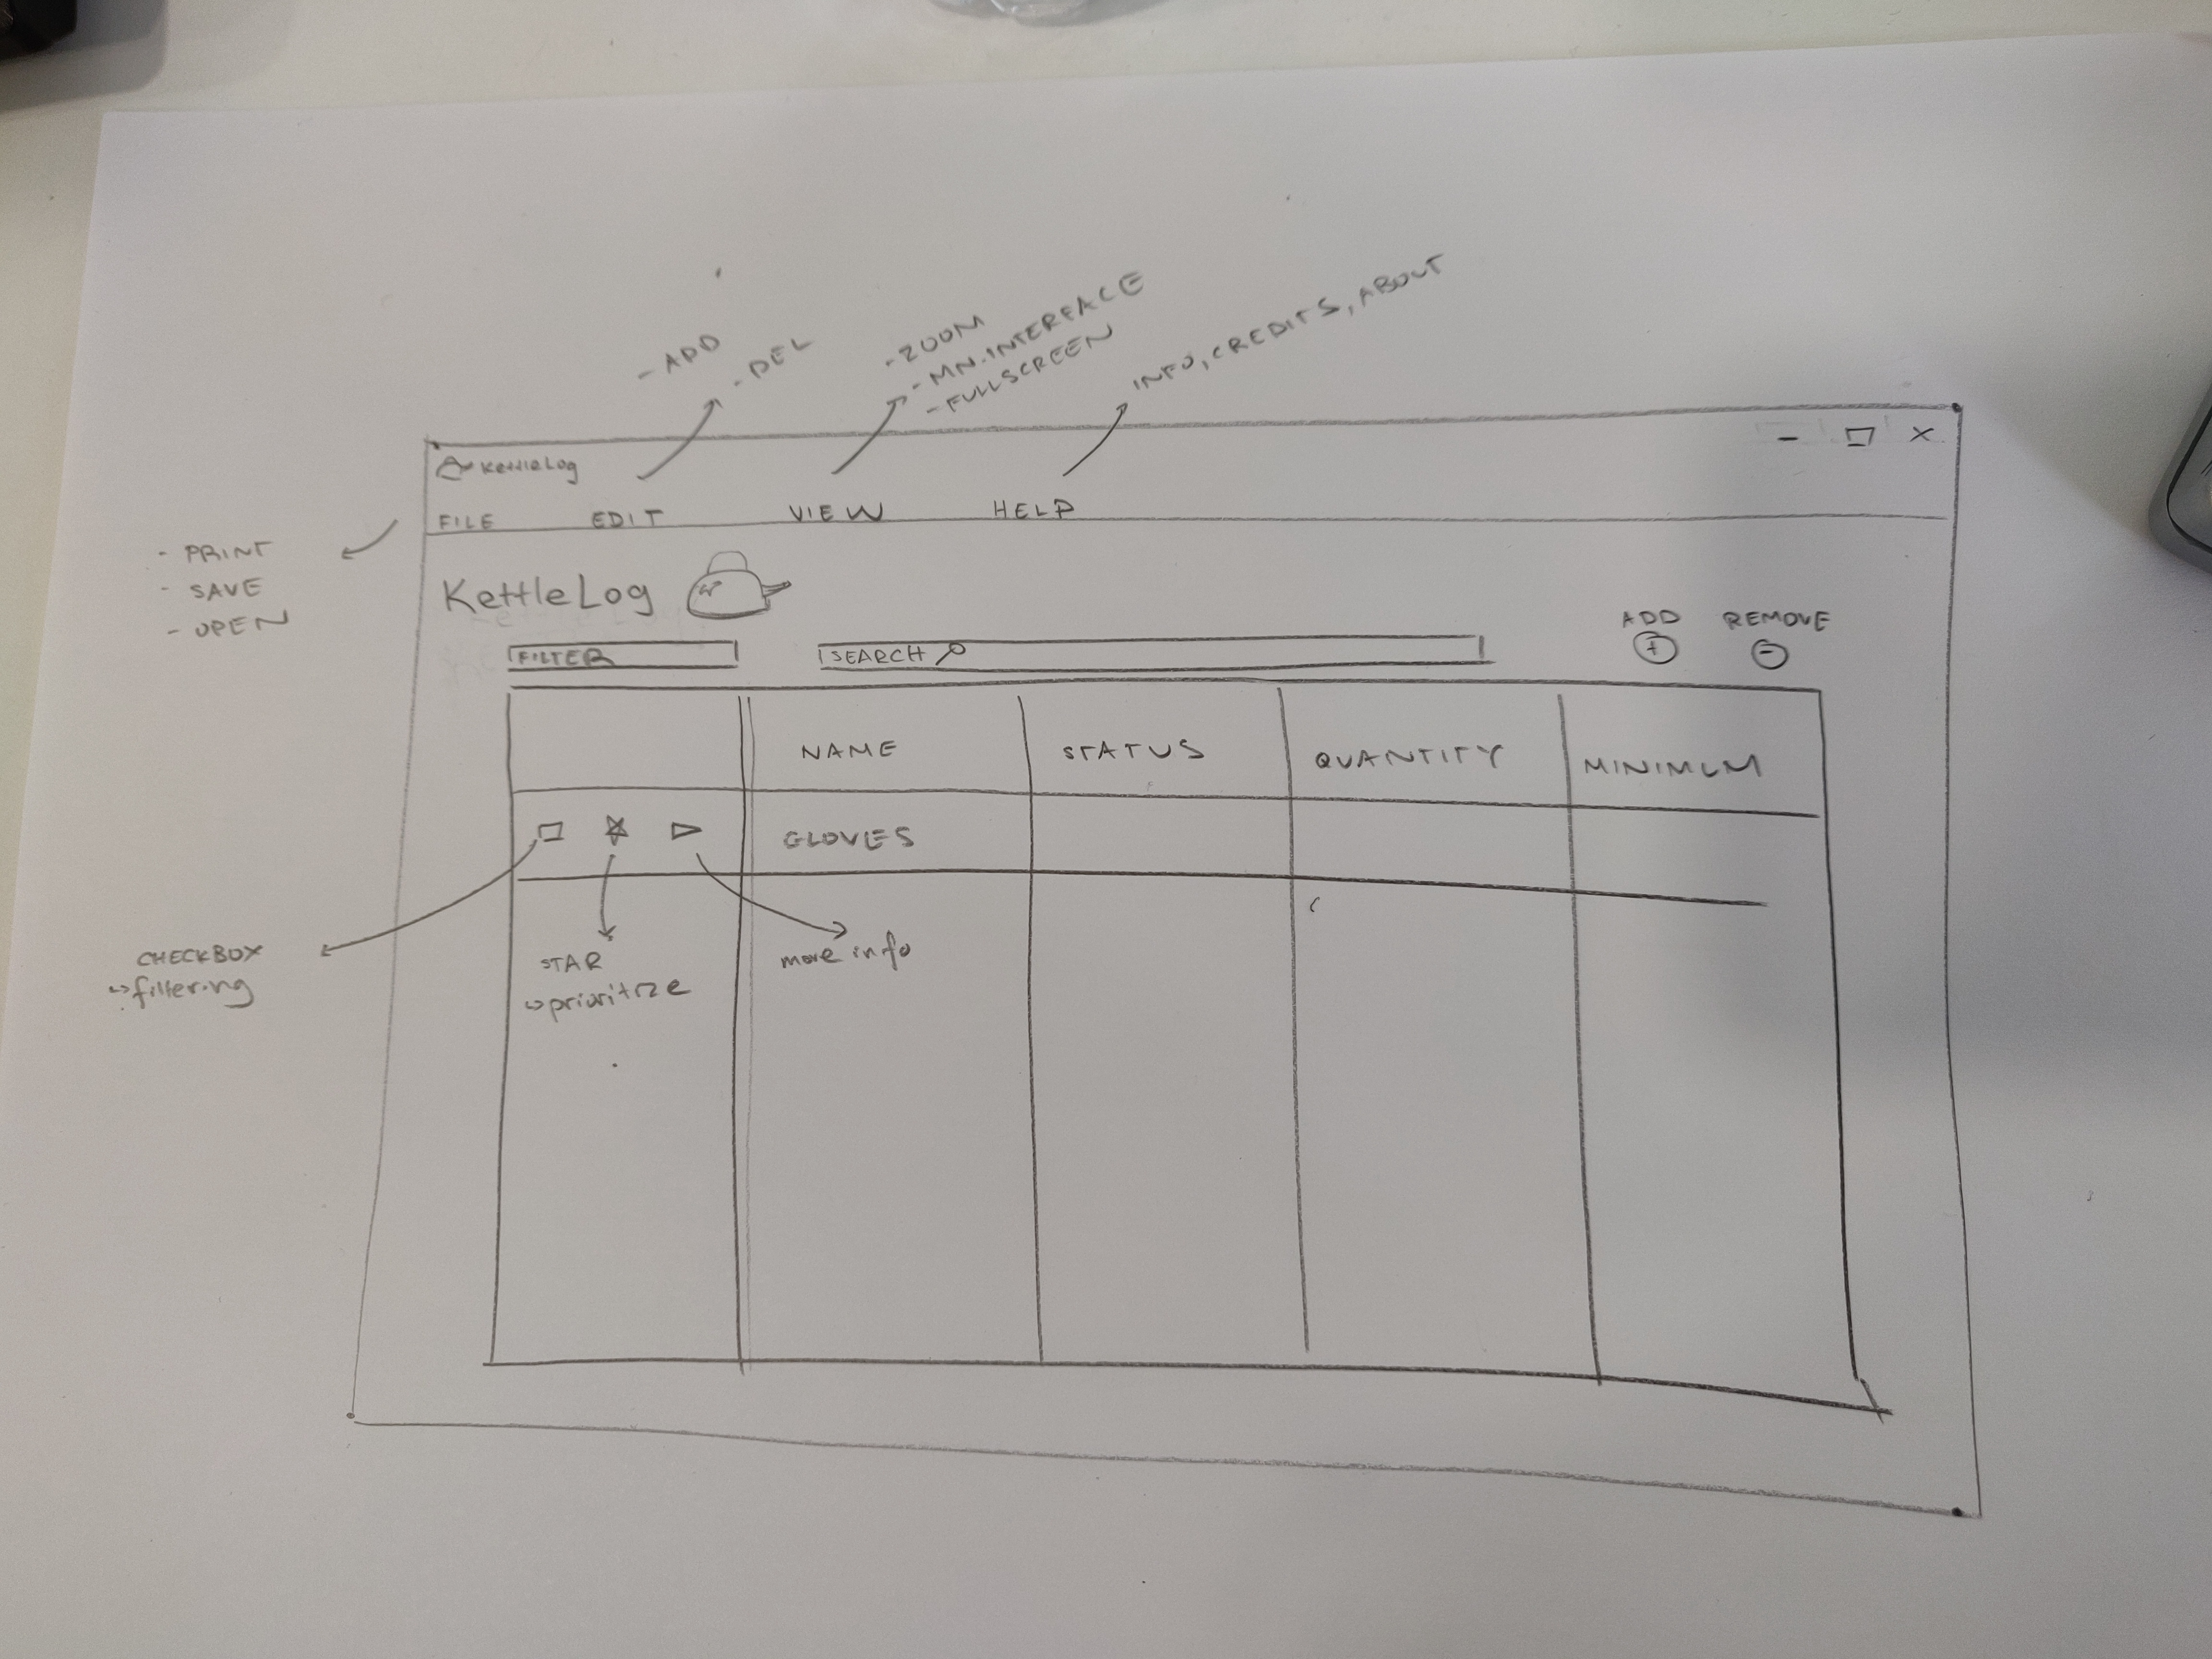 - ADD
- DEL
- ZOOM
- MN.INTERFACE
- FULLSCREEN
INFO, CREDITS, ABOUT
KettleLog
FILE EDIT VIEW HELP
- PRINT
- SAVE
- OPEN
KettleLog
ADD REMOVE
FILTER SEARCH
NAME STATUS QUANTITY MINIMUM
GLOVES
CHECKBOX
↪filtering
STAR
↪prioritize
more info